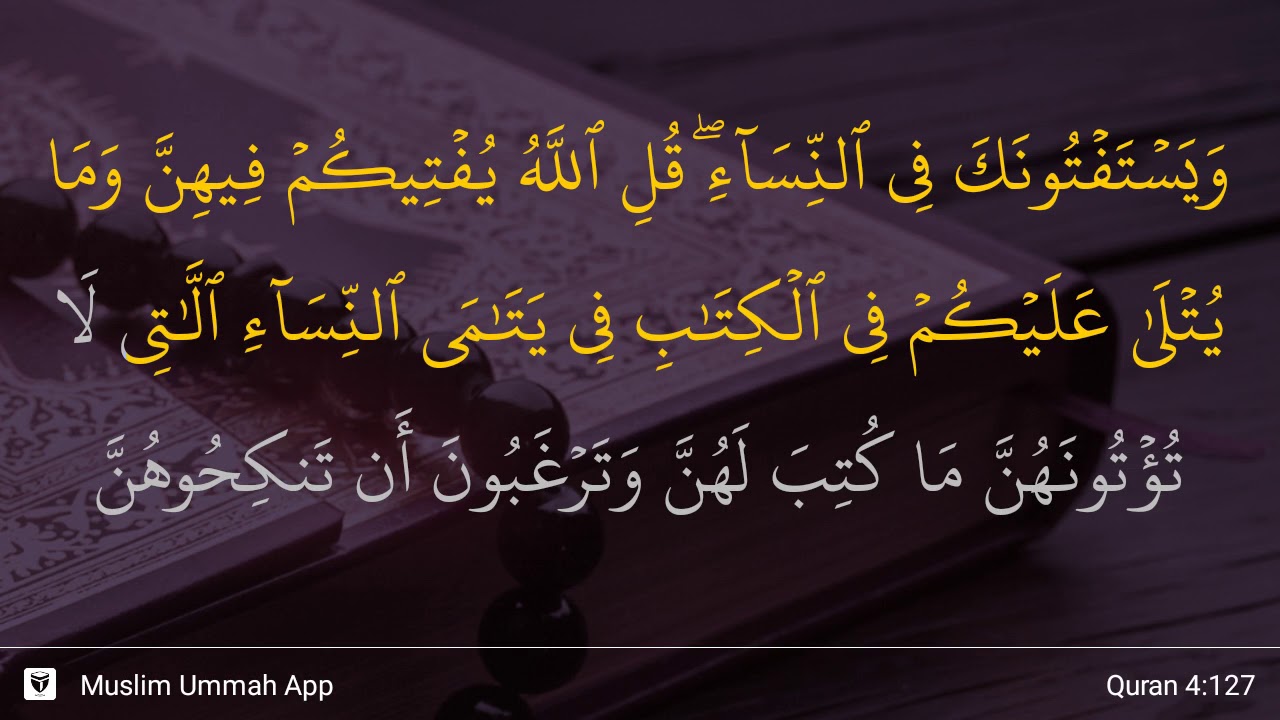 وَيَسۡتَفۡتُونَكَ فِى ٱلنِّسَآءِۖ قُلِ ٱللَّهُ يُفۡتِيكُمۡ فِيهِنَّ وَمَا
يُتۡلَىٰ عَلَيۡكُمۡ فِى ٱلۡكِتَـٰبِ فِى يَتَـٰمَى ٱلنِّسَآءِ ٱلَّـٰتِى لَا
تُؤۡتُونَهُنَّ مَا كُتِبَ لَهُنَّ وَتَرۡغَبُونَ أَن تَنكِحُوهُنَّ
Muslim Ummah App
Quran 4:127